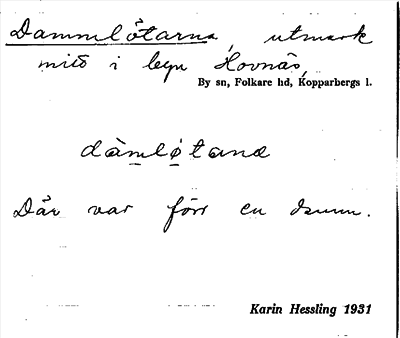 Dammlötarna, utmark
mitt i byn Hovnäs,
By sn, Folkare hd, Kopparbergs l.
dàmlø̀tanα
Där var förr en damm.
Karin Hessling 1931